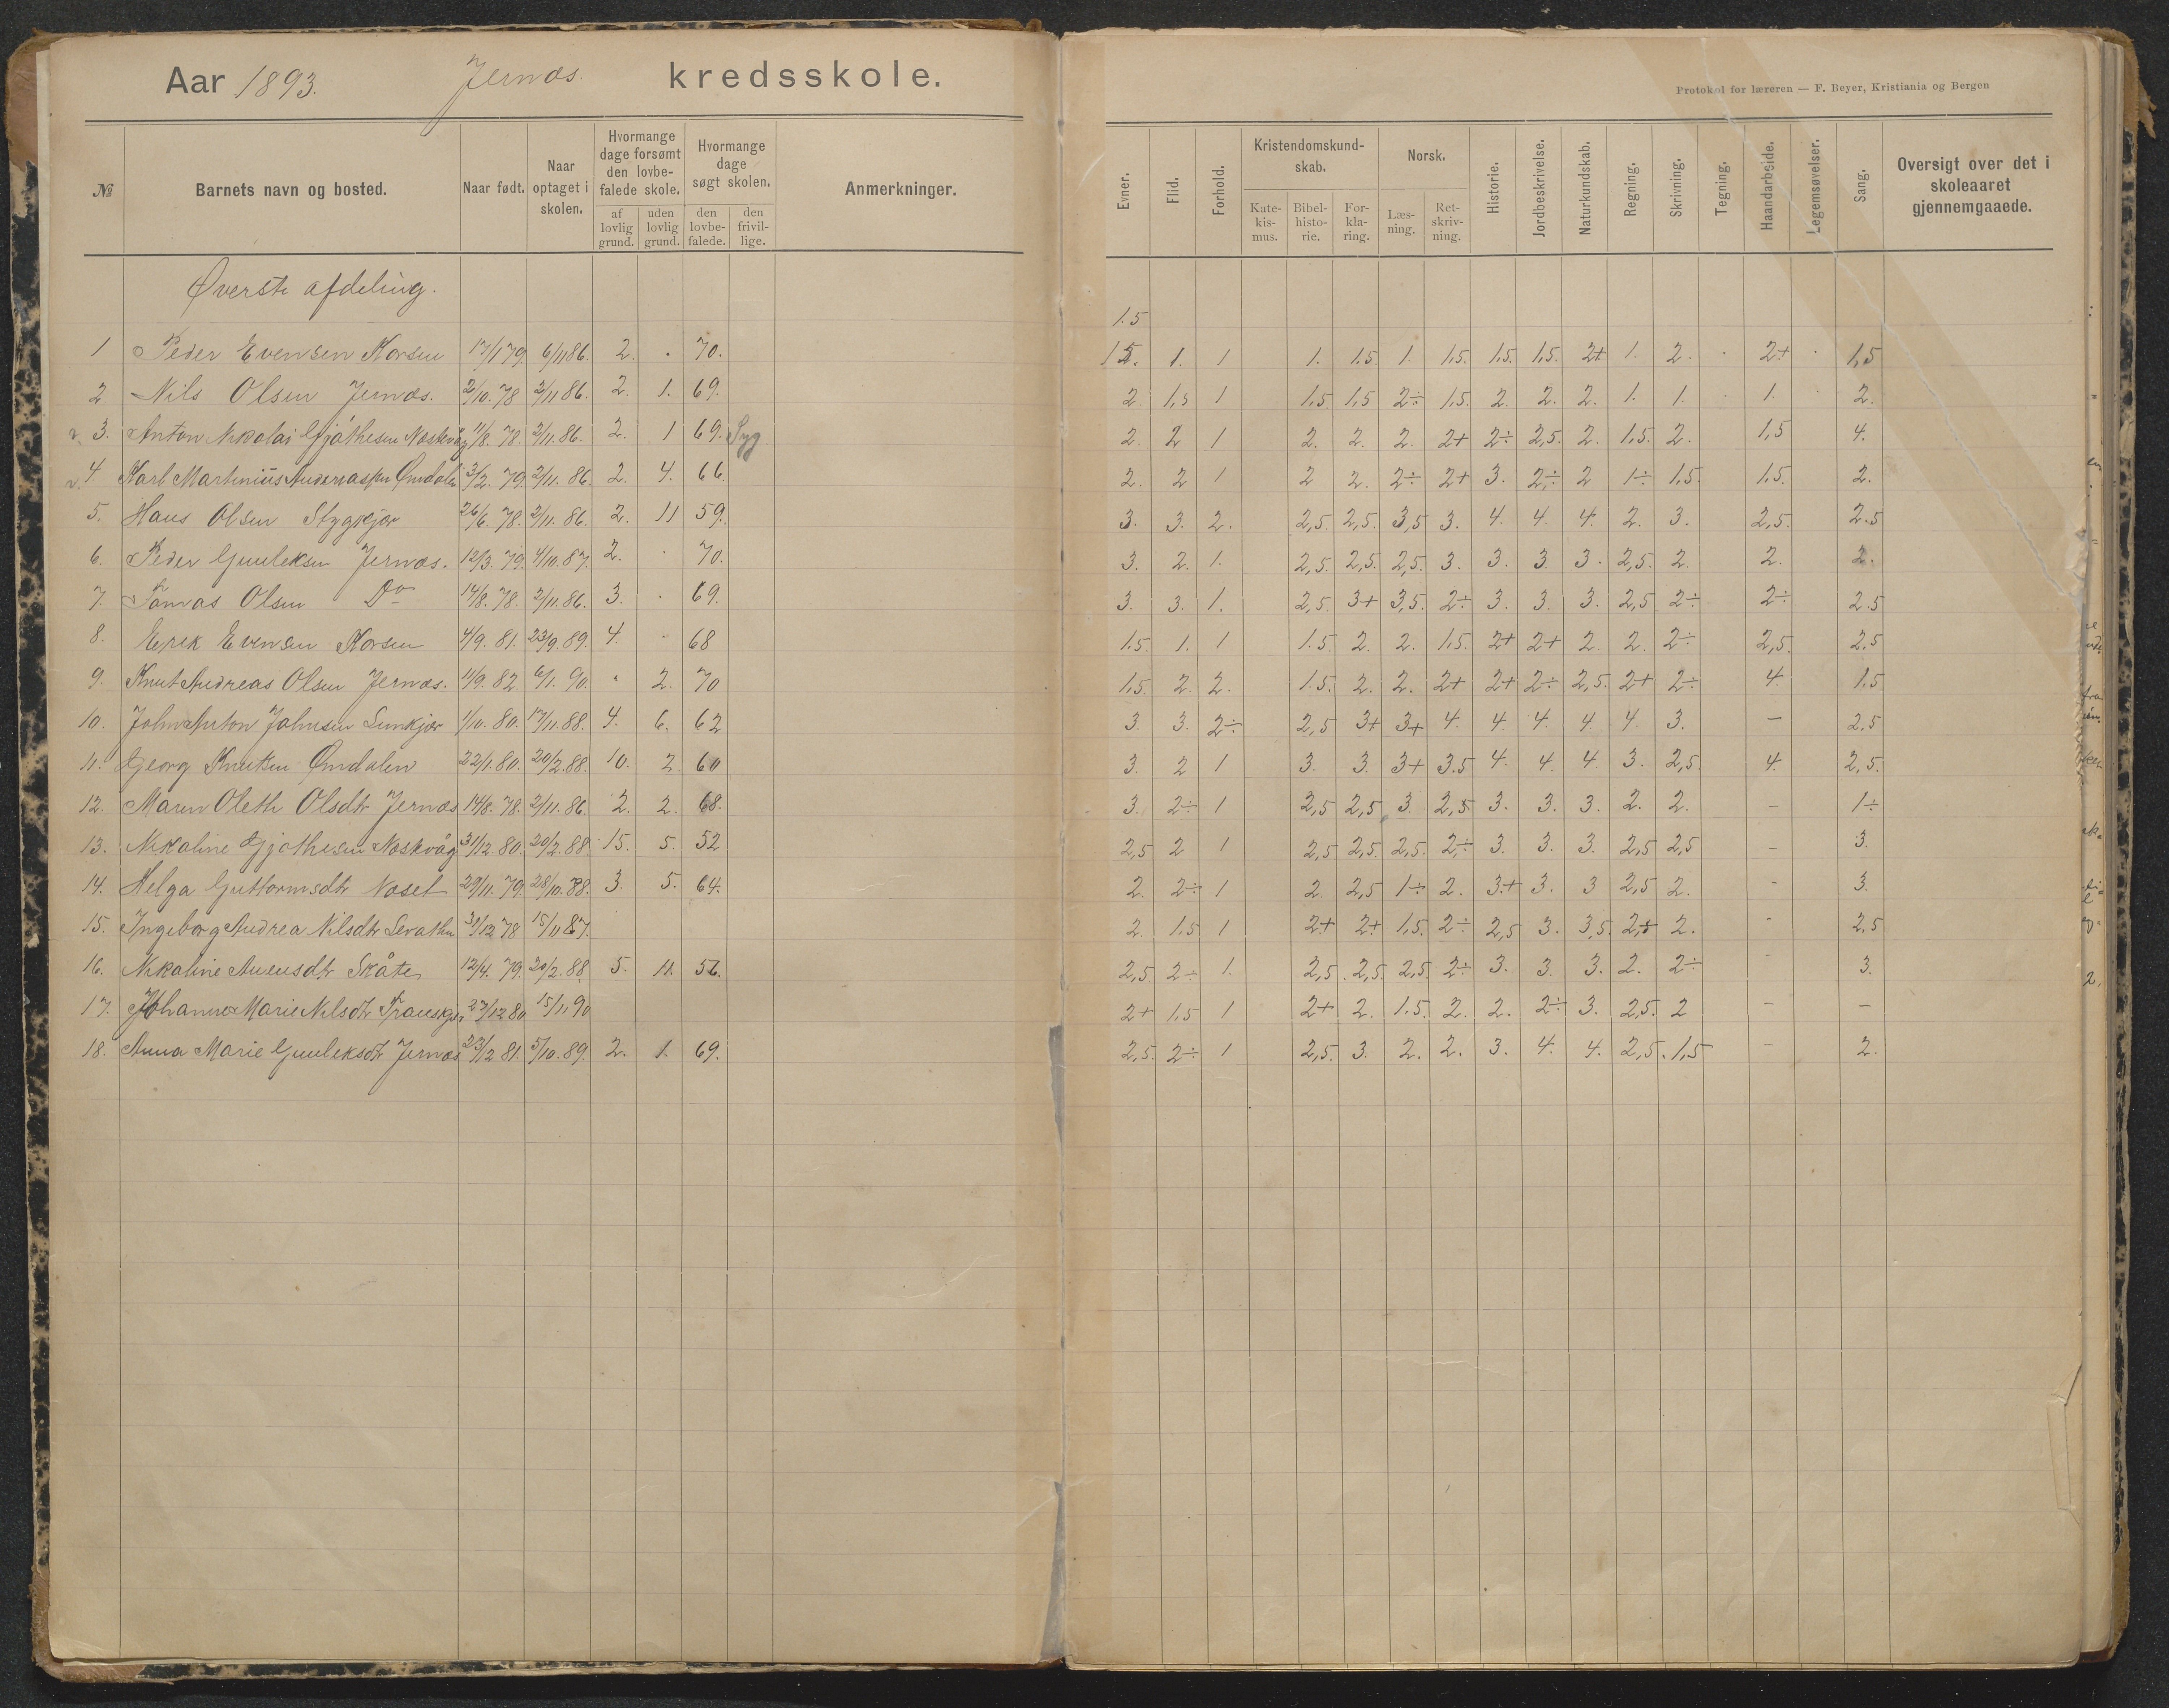 Aar 1893. Jernæs. kredsskole.
Protokol for læreren — F. Beyer, Kristiania og Bergen
№ Barnets navn og bosted. Naar født. Naar optaget i skolen. Hvormange dage forsømt den lovbefalede skole. af lovlig grund. uden lovlig grund. Hvormange dage søgt skolen. den lovbefalede. den frivillige. Anmerkninger.
Evner. Flid. Forhold. Kristendomskundskab. Katekismus. Bibelhistorie. Forklaring. Norsk. Læsning. Retskrivning. Historie. Jordbeskrivelse. Naturkundskab. Regning. Skrivning. Tegning. Haandarbeide. Legemsøvelser. Sang. Oversigt over det i skoleaaret gjennemgaaede.
Øverste afdeling.
1.5
1 Peder Evensen Korsen 17/1 79. 6/11 86. 2. . 70. 1. 1 1. 1.5 1. 1.5. 1.5. 1.5. 2+ 1. 2. . 2+ . 1,5
2 Nils Olsen Jernæs. 2/10. 78 2/11 86. 2. 1. 69. 2. 1,5 1 1.5. 1.5 2÷ 1.5. 2. 2. 2. 1. 1. . 1. 2.
3. Anton Nikolai 11/8. 78. 2/11. 86. 2. 1 69. Syg 2. 2 1 2. 2. 2. 2+ 2÷ 2,5. 2. 1.5. 2. 1,5 4.
4 Karl Martinius 3/2. 79. 2/11. 86. 2. 4. 66. 2. 2 1 2 2. 2÷ 2+ 3. 2÷ 2 1÷ 1.5. 1.5. 2.
5. Hans Olsen Stygkjær 26/6. 78. 2/11. 86. 2. 11 59. 3. 3. 2. 2,5. 2,5. 3,5 3. 4. 4. 4. 2. 3. 2,5. 2.5
6. Peder Gunleksen Jernæs. 12/3. 79. 4/10. 87. 2. . 70. 3. 2. 1. 2,5. 2,5. 2,5. 3. 3. 3. 3. 2,5. 2. 2. 2.
7. Tomas Olsen Do 14/8. 78. 2/11. 86. 3. . 69. 3. 3. 1. 2,5. 3+ 3,5. 2÷ 3. 3. 3. 2,5 2÷ 2÷ 2.5
8. Erik Evensen Korsen 4/9. 81. 23/9. 89. 4. . 68 1.5. 1. 1 1.5. 2. 2. 1.5. 2+ 2+ 2. 2. 2÷ 2,5. 2,5
9. Knut Andreas Olsen Jernæs. 11/9. 82. 6/1. 90. . 2. 70 1,5. 2. 2. 1.5. 2. 2. 2+ 2+ 2÷ 2,5. 2+ 2÷ 4. 1,5
10. John Anton Johnsen 1/10. 80. 17/11. 88. 4. 6. 62 3. 3. 2÷ 2,5 3+ 3+ 4. 4. 4. 4. 4. 3. – 2,5
11. Georg Knutsen Omdalen 22/1. 80. 20/2. 88. 10. 2. 60 3. 2 1 3. 3. 3+ 3.5 4. 4. 4. 3. 2,5. 4. 2,5.
12. Maren Olethe Olsdtr Jernæs 14/8. 78. 2/11. 86. 2. 2. 68. 3. 2÷ 1 2,5 2,5 3 2,5 3. 3. 3. 2. 2. – 1÷
13. Nikoline 31/12. 80. 20/2. 88. 15. 5. 52 2,5 2 1 2,5 2,5. 2,5. 2÷ 3. 3. 3. 2,5 2,5 – 3.
14. Helga Guttormsdtr Noset 29/11. 79. 28/10. 88. 3. 5. 64. 2. 2÷ 1 2. 2,5 1÷ 2. 3+ 3. 3 2,5 2. – 3.
15. Ingeborg Andrea Nilsdtr 31/12 78 15/11 87. 2. 1.5 1 2+ 2+ 1.5. 2÷ 2,5 3. 3,5. 2. – 2,5
16. Nikoline Skåte 12/4. 79. 20/2. 88. 5. 11. 56. 2,5. 2÷ 1. 2,5. 2,5. 2,5. 2÷ 3. 3. 3. 2. 2÷ – 3.
17. Johanne Marie Nilsdtr 27/12 80 15/1. 90 2+ 1,5 1 2+ 2. 1.5. 2. 2. 2÷ 3. 2,5. 2 – –
18. Anna Marie Gunleksdtr Jernæs 23/12 81. 5/10. 89. 2. 1. 69. 2,5. 2÷ 1 2,5. 3. 2. 2. 3. 4. 4. 2,5. 1,5 – 2.